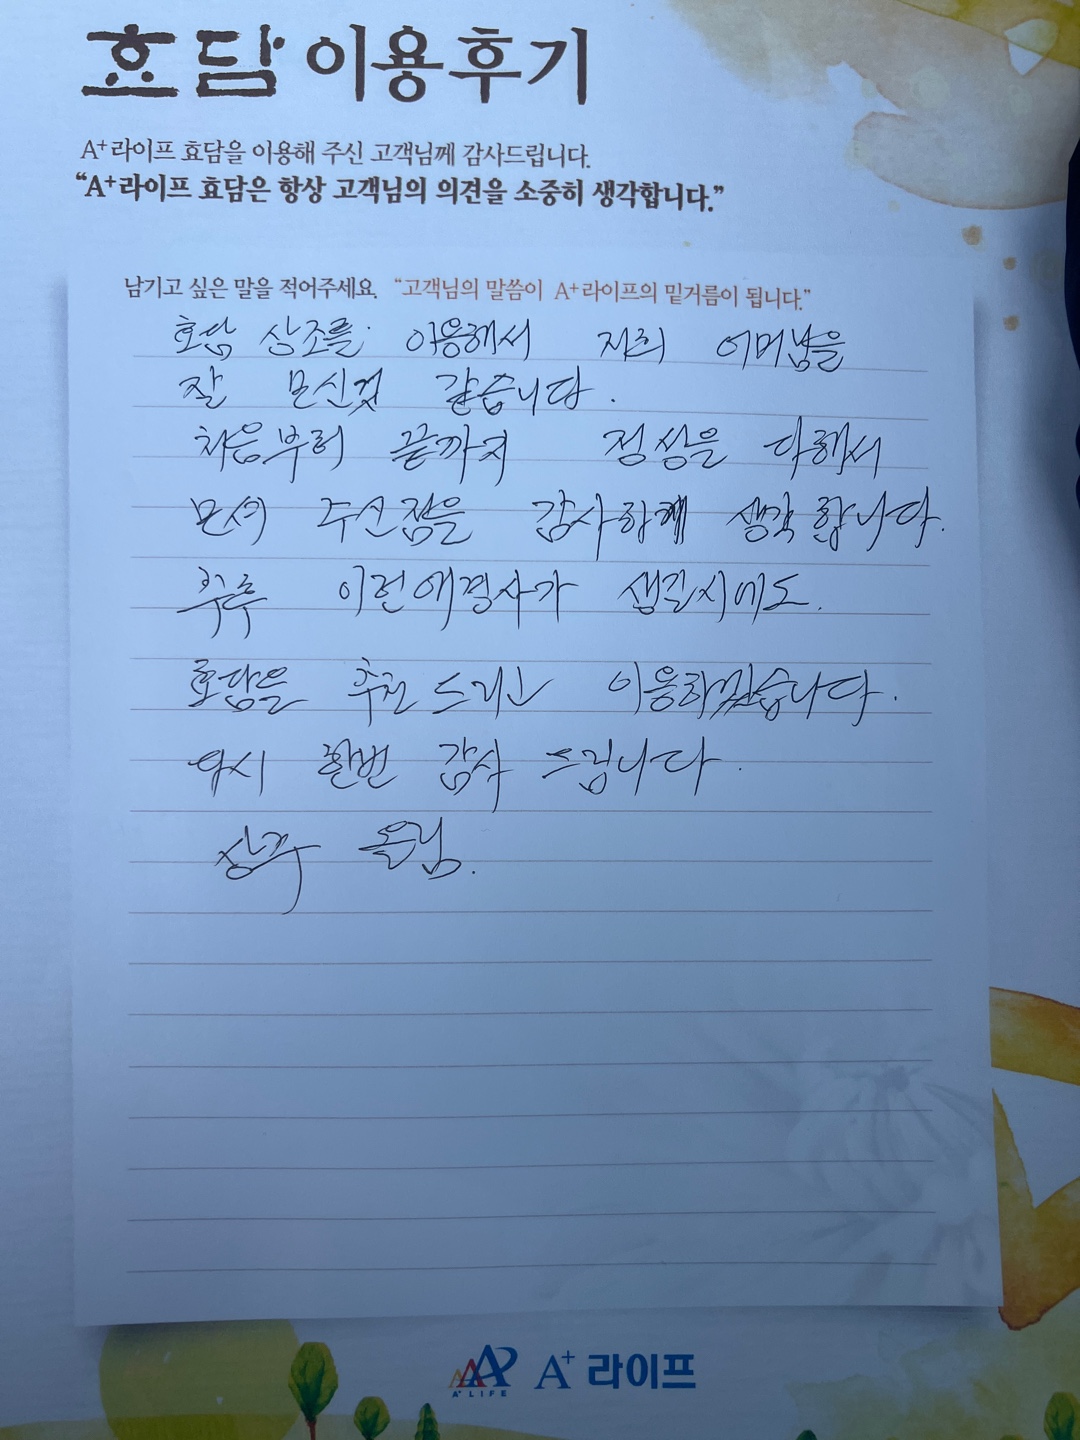 효담 이용후기
A⁺라이프 효담을 이용해 주신 고객님께 감사드립니다.
“A⁺라이프 효담은 항상 고객님의 의견을 소중히 생각합니다.”
남기고 싶은 말을 적어주세요. “고객님의 말씀이 A⁺라이프의 밑거름이 됩니다.”
효담 상조를 이용해서 저희 어머님을
잘 모신것 같습니다.
처음부터 끝까지 정성을 다해서
모셔 주신점을 감사하게 생각합니다.
추후 이런 애경사가 생길시에도.
효담을 추천드리고 이용하겠습니다.
다시 한번 감사 드립니다.
상주 올림.
A⁺ LIFE A⁺ 라이프